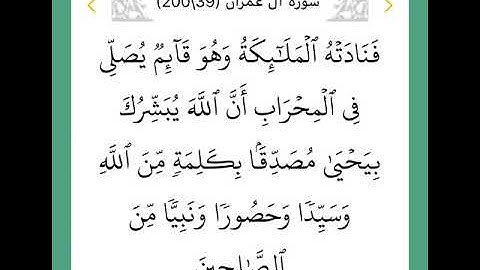 سورة آل عمران (39\200)
فَنَادَتْهُ ٱلْمَلَـٰٓئِكَةُ وَهُوَ قَآئِمٌۭ يُصَلِّى
فِى ٱلْمِحْرَابِ أَنَّ ٱللَّهَ يُبَشِّرُكَ
بِيَحْيَىٰ مُصَدِّقًۢا بِكَلِمَةٍۢ مِّنَ ٱللَّهِ
وَسَيِّدًۭا وَحَصُورًۭا وَنَبِيًّۭا مِّنَ
ٱلصَّـٰلِحِينَ